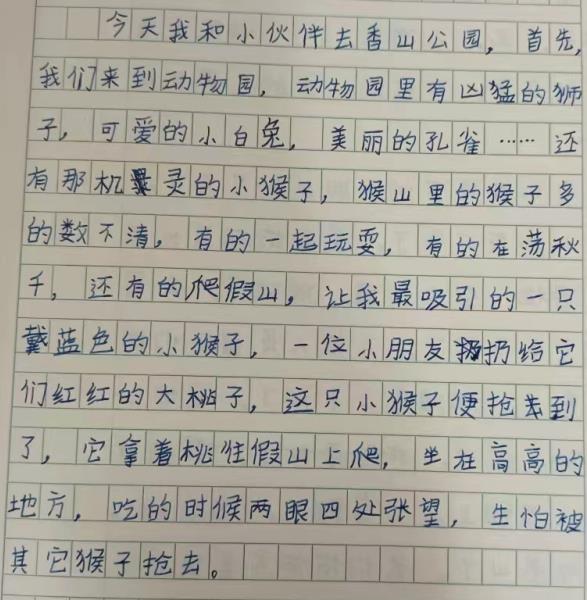 今天我和小伙伴去香山公园，首先，
我们来到动物园，动物园里有凶猛的狮
子，可爱的小白兔，美丽的孔雀……还
有那机灵的小猴子，猴山里的猴子多
的数不清，有的一起玩耍，有的在荡秋
千，还有的爬假山，让我最吸引的一只
戴蓝色的小猴子，一位小朋友扔给它
们红红的大桃子，这只小猴子便抢先到
了，它拿着桃往假山上爬，坐在高高的
地方，吃的时候两眼四处张望，生怕被
其它猴子抢去。